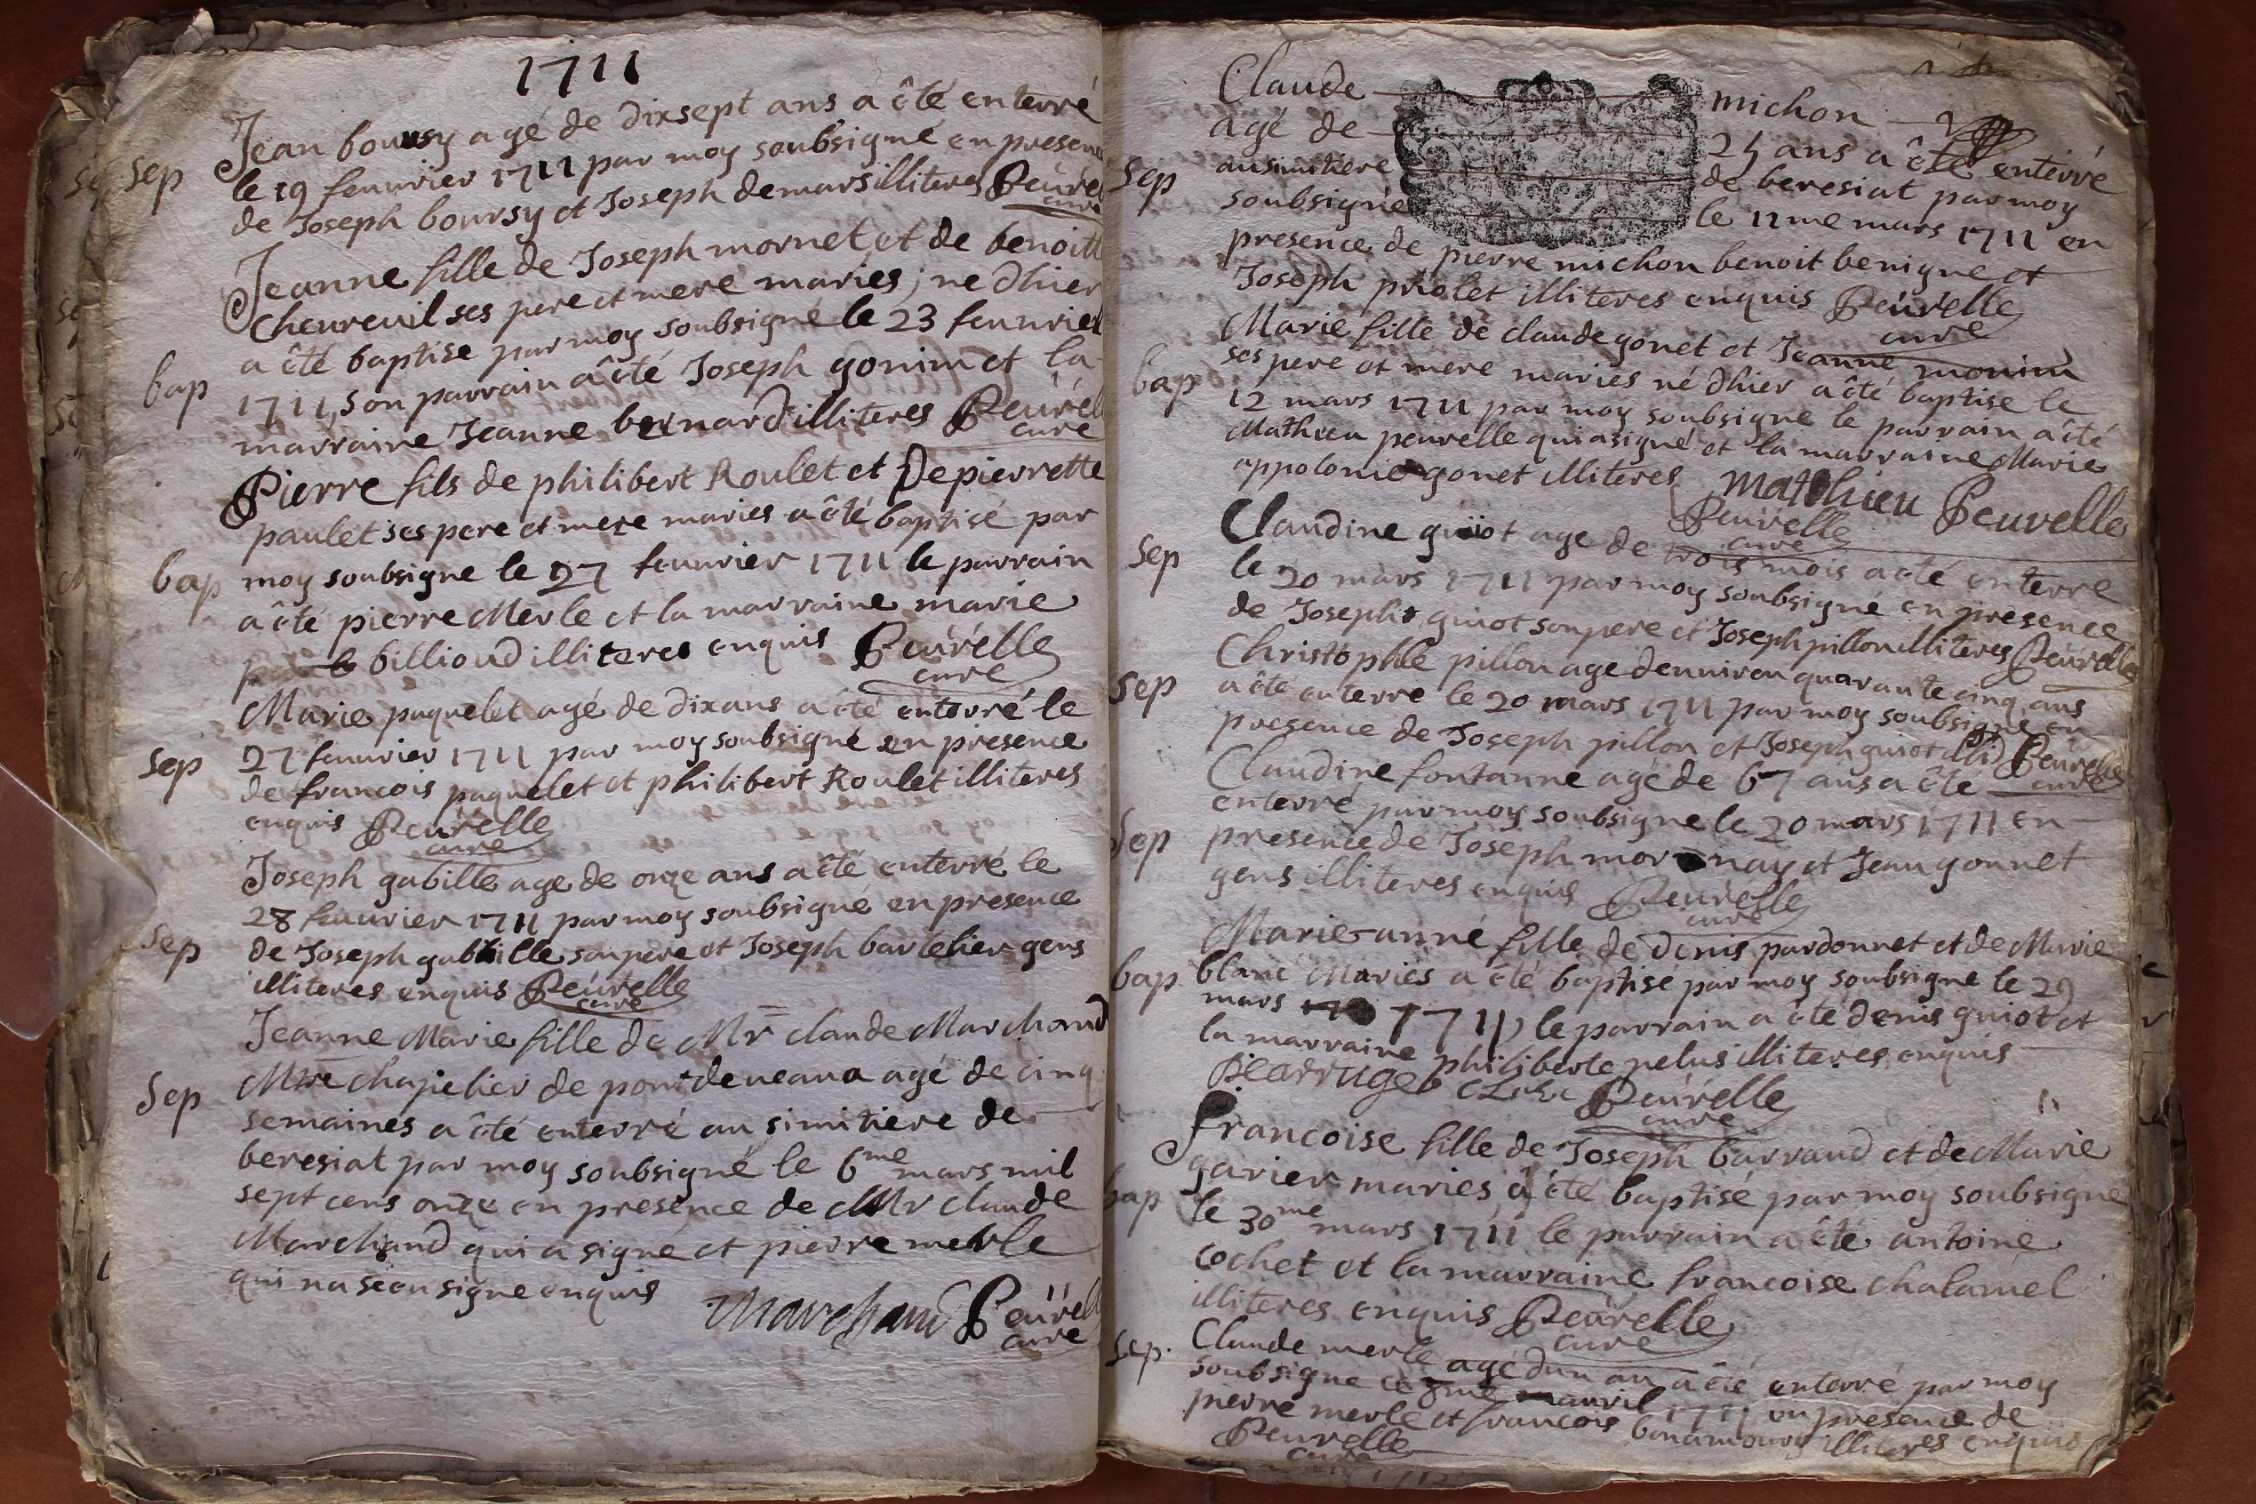 1711
Jean boursy agé de dixsept ans a êté enterré
sep
le 19 feuurier 1711 par moy soubsigné en presence
de Joseph boursy et Joseph demars illiteres Peurelle
curé
Jeanne fille de Joseph mornet et de benoitte
cheureuil ses pere et mere mariés ; ne dhier
a êté baptise par moy soubsigné le 23 feuurier
bap
1711, son parrain a êté Joseph gonin et la
marraine Jeanne bernard illiteres Peurelle
cure
Pierre fils de philibert Roulet et De pierrette
paulet ses pere et mere maries a êté baptisé par
bap
moy soubsigné le 27 feuurier 1711 le parrain
a êté pierre Merle et la marraine marie
billioud illiteres enquis Peurelle
cure
Marie paquelet agé de dix ans a êté enterré le
sep
27 feuurier 1711 par moy soubsigné en presence
de francois paquelet et philibert Roulet illiteres
enquis Peurelle
cure
Joseph gabille age de onze ans a êté enterré le
28 feuurier 1711 par moy soubsigné en presence
sep
de Joseph gabille son pere et Joseph bartelier gens
illiteres enquis Peurelle
cure
Jeanne Marie fille de Mr claude Marchand
sep
Mtre chapelier de pont de ueaux agé de cinq
semaines a êté enterré au simitiere de
beresiat par moy soubsigné le 6me mars mil
sept cens onze en presence de Mr claude
Marchand qui a signé et pierre merle
qui na sceu signe enquis
Marchand Peurelle
cure
Claude michon
agé de 25 ans a êté enterré
sep
au simitiere de beresiat par moy
soubsigné le 11me mars 1711 en
presence de pierre michon benoit benigne et
Joseph priolet illiteres enquis Peurelle
cure
Marie fille de claude gonet et Jeanne monin
bap
ses pere et mere maries né dhier a êté baptise le
12 mars 1711 par moy soubsigne le parrain a êté
Mathieu peurelle qui a signé et la marraine Marie
appolonie gonet illiteres Matthieu Peurelle
Peurelle
cure
Claudine guiot age de trois mois a êté enterre
sep
le 20 mars 1711 par moy soubsigné en presence
de Joseph guiot son pere et Joseph pillon illiteres Peurelle
Christophle pillon age denuiron quarante cinq ans
sep
a êté enterre le 20 mars 1711 par moy soubsigne en
presence de Joseph pillon et Joseph guiot illi Peurelle
cure
Claudine fontanne agé de 67 ans a êté
enterré par moy soubsigne le 20 mars 1711 en
sep
presence de Joseph mornay et Jean gonnet
gens illiteres enquis Peurelle
cure
Marie-anne fille de denis pardonnet et de Marie
bap
blanc Mariés a êté baptise par moy soubsigne le 29
mars 1711, le parrain a êté denis guiot et
la marraine philiberte pelus illiteres enquis
Peurelle
cure
francoise fille de Joseph barraud et de Marie
garier maries a êté baptisé par moy soubsigne
bap
le 30me mars 1711 le parrain a êté antoine
cochet et la marraine francoise chalamel
illiteres enquis Peurelle
cure
sep.
Claude merle agé dun an a êté enterre par moy
soubsigne ce auril 1711 en presence de
pierre merle et francois bonamour illiteres enquis
Peurelle
cure